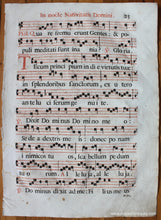 In nocte Nativitatis Domini.
Qua re fremu erunt Gentes: & po
puli meditati sunt ina nia? Gloria
Tecum princi pium in die
in splendoribus sanctorum, ex utero
ante lu ci ferum ge nui te.
Dixit Dominus Domino me o:
Se de a dextris me is: donec
inimicos tu os, sca bellum pedum
Dominus dixit ad me: Fili us me us